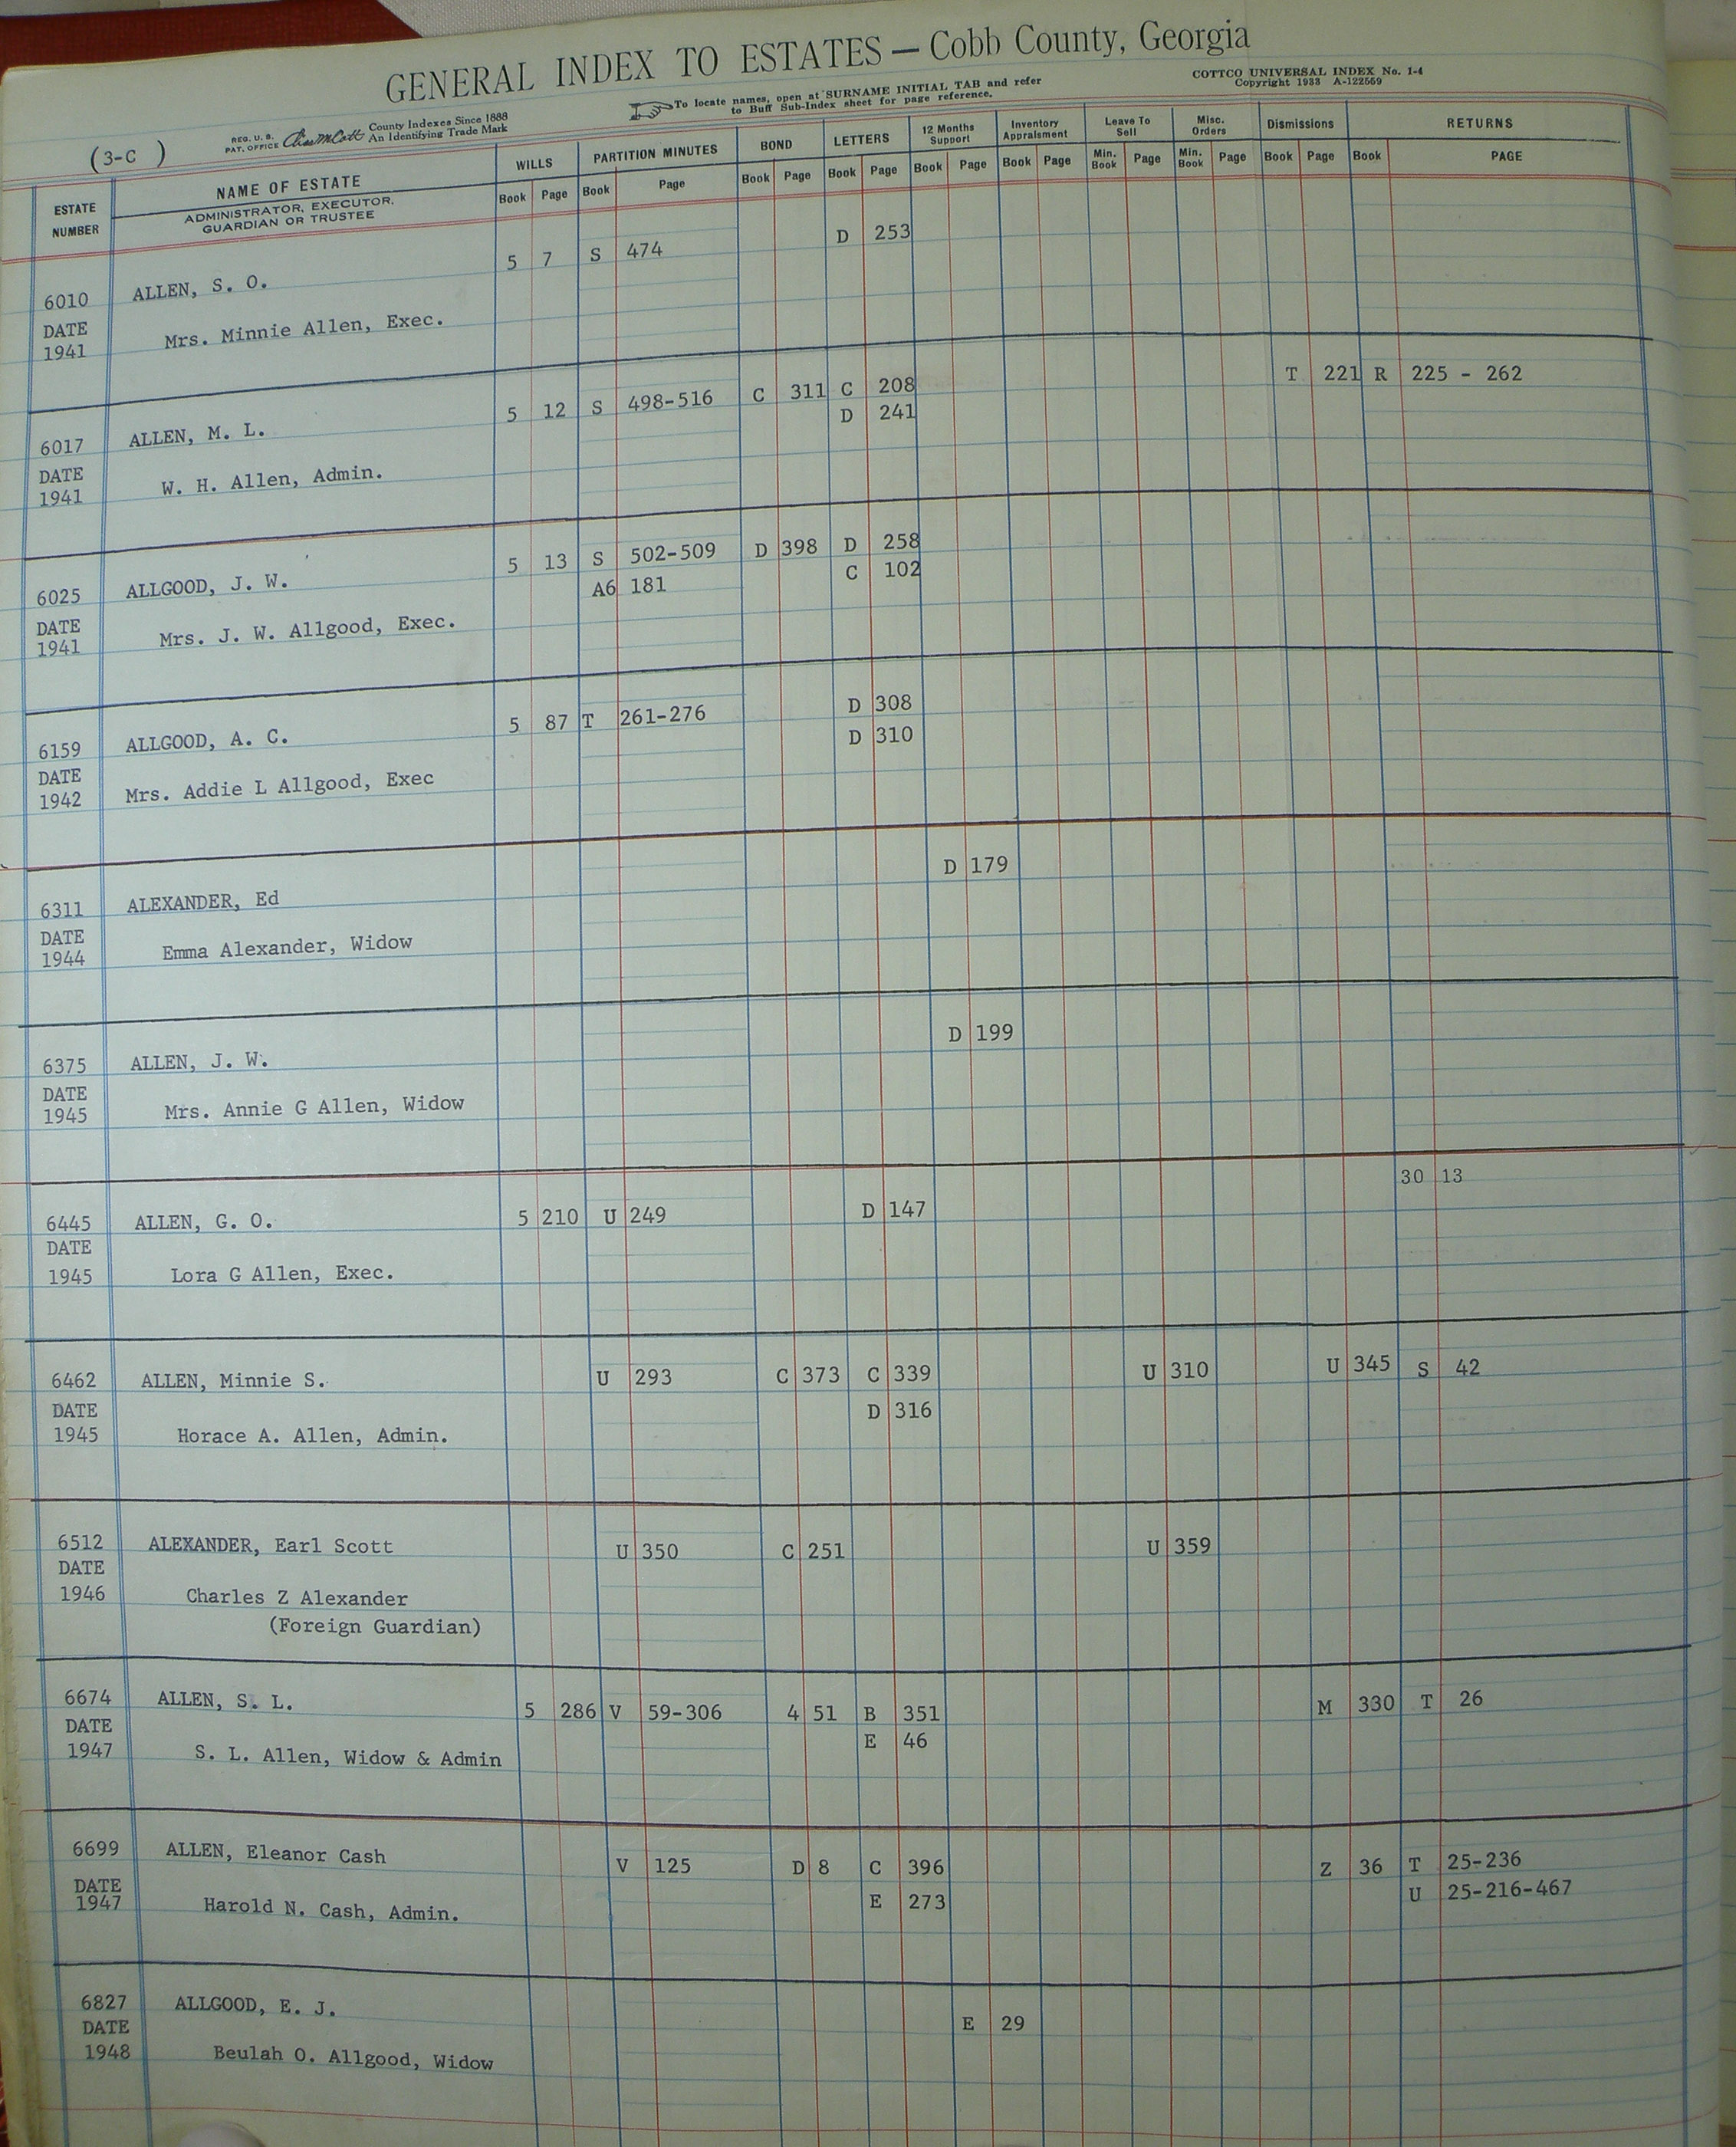 GENERAL INDEX TO ESTATES — Cobb County, Georgia
COTTCO UNIVERSAL INDEX No. 1-4
Copyright 1933 A-122559
To locate names, open at SURNAME INITIAL TAB and refer
to Buff Sub-Index sheet for page reference.
(3-C )
REG. U. S. PAT. OFFICE County Indexes Since 1888
An Identifying Trade Mark
ESTATE NUMBER NAME OF ESTATE WILLS PARTITION MINUTES BOND LETTERS 12 Months Support Inventory Appraisment Leave To Sell Misc. Orders Dismissions RETURNS
ADMINISTRATOR, EXECUTOR, GUARDIAN OR TRUSTEE Book Page Book Page Book Page Book Page Book Page Book Page Min. Book Page Min. Book Page Book Page Book PAGE
6010 ALLEN, S. O. 5 7 S 474 D 253
DATE
1941 Mrs. Minnie Allen, Exec.
6017 ALLEN, M. L. 5 12 S 498-516 C 311 C 208 T 221 R 225 - 262
D 241
DATE
1941 W. H. Allen, Admin.
6025 ALLGOOD, J. W. 5 13 S 502-509 D 398 D 258
A6 181 C 102
DATE
1941 Mrs. J. W. Allgood, Exec.
6159 ALLGOOD, A. C. 5 87 T 261-276 D 308
D 310
DATE
1942 Mrs. Addie L Allgood, Exec
6311 ALEXANDER, Ed D 179
DATE
1944 Emma Alexander, Widow
6375 ALLEN, J. W. D 199
DATE
1945 Mrs. Annie G Allen, Widow
6445 ALLEN, G. O. 5 210 U 249 D 147 30 13
DATE
1945 Lora G Allen, Exec.
6462 ALLEN, Minnie S. U 293 C 373 C 339 U 310 U 345 S 42
DATE D 316
1945 Horace A. Allen, Admin.
6512 ALEXANDER, Earl Scott U 350 C 251 U 359
DATE
1946 Charles Z Alexander
(Foreign Guardian)
6674 ALLEN, S. L. 5 286 V 59-306 4 51 B 351 M 330 T 26
DATE E 46
1947 S. L. Allen, Widow & Admin
6699 ALLEN, Eleanor Cash V 125 D 8 C 396 Z 36 T 25-236
DATE E 273 U 25-216-467
1947 Harold N. Cash, Admin.
6827 ALLGOOD, E. J. E 29
DATE
1948 Beulah O. Allgood, Widow